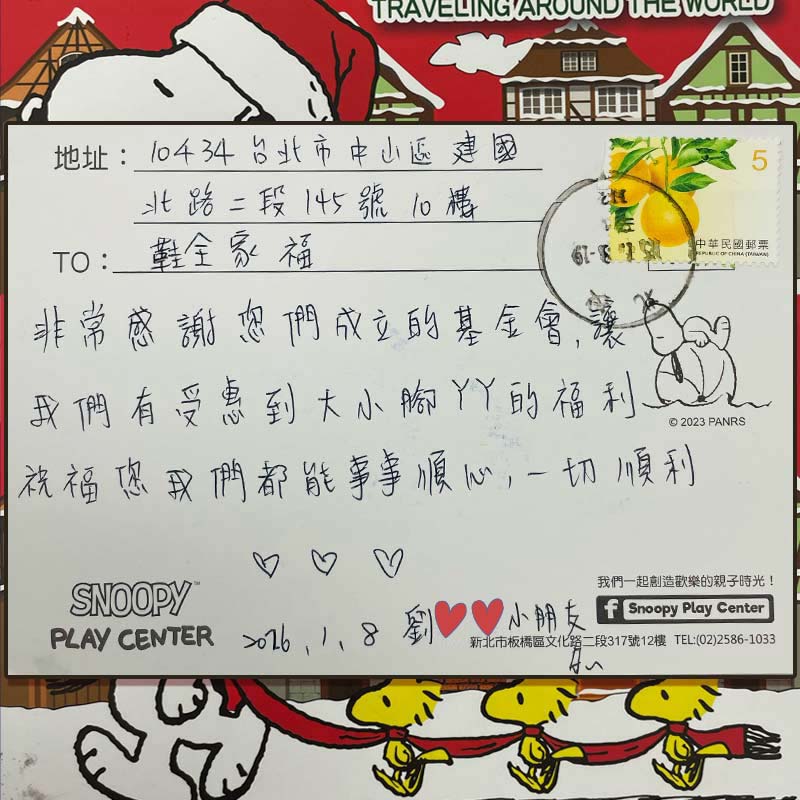 TRAVELING AROUND THE WORLD
地址：10434 台北市中山區建國
北路二段145號10樓
TO：鞋全家福
5
中華民國郵票
REPUBLIC OF CHINA (TAIWAN)
非常感謝您們成立的基金會,讓
我們有受惠到大小腳丫丫的福利
祝福您我們都能事事順心,一切順利
♡ ♡ ♡
© 2023 PANRS
我們一起創造歡樂的親子時光！
f Snoopy Play Center
SNOOPY™
PLAY CENTER
2026,1,8 劉❤❤小朋友
新北市板橋區文化路二段317號12樓 TEL:(02)2586-1033